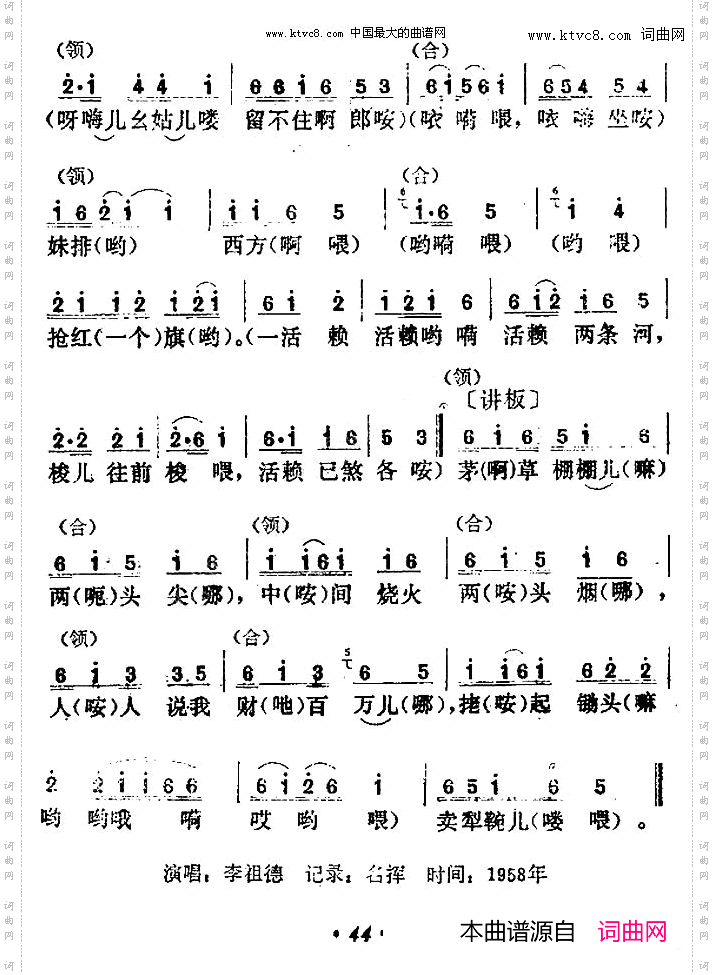 www.ktvc8.com 中国最大的曲谱网
www.ktvc8.com 词曲网
(领) (合)
2·1 4 4 1 | 0 6 6 1 6 5 3 | 6 1 5 6 1 | 6 5 4 5 4
(呀嗨儿幺姑儿喽 留不住啊 郎㖠)(哝嗬喂，哝嗨坐㖠)
(领) (合)
1 6 2 1 1 | 1 1 6 5 | 1·6 5 | 1 4
妹排(哟) 西方(啊 喂) (哟嗬 喂) (哟 喂)
2 1 1 2 1 2 1 | 6 1 2 | 1 2 1 6 | 6 1 2 1 6 5
抢红(一个)旗(哟)。(一活 赖 活赖哟嗬 活赖 两条河，
(领)
〔讲板〕
2·2 2 1 | 2·6 1 | 6·1 1 6 | 5 3 6 1 6 5 1 6
梭儿 往前 梭 喂，活赖 已煞 各 㖠) 茅(啊)草 棚棚儿(嘛)
(合) (领) (合)
6 1 5 1 6 | 1 1 6 1 1 6 | 6 1 5 1 6
两(呃)头 尖(哪)，中(㖠)间 烧火 两(㖠)头 烟(哪)，
(领) (合)
6 1 3 3.5 | 6 1 3 6 5 | 1 1 6 1 6 2 2
人(㖠)人 说我 财(吔)百 万儿(哪)，㧯(㖠)起 锄头(嘛
2 2 1 1 6 6 | 6 1 2 6 1 | 6 5 1 6 5
哟 哟哦 嗬 哎 哟 喂) 卖犁鞔儿(喽 喂)。
演唱：李祖德 记录：名挥 时间：1958年
· 44 ·
本曲谱源自 词曲网
词曲网